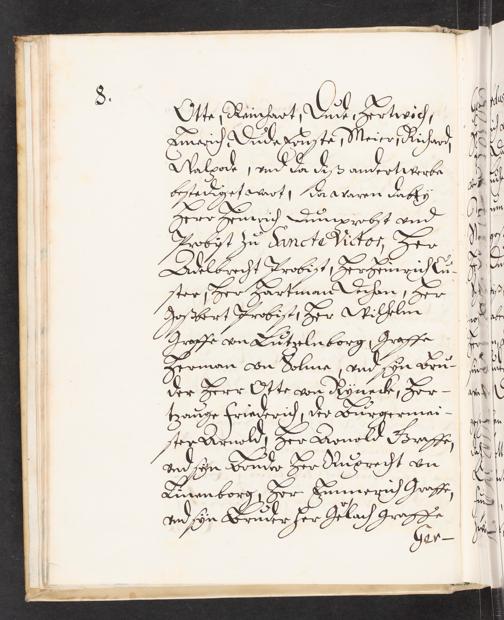 8.
Otto, Reinhart, Dude, Hertwich,
Emerich, Dude, Meier, Richard,
Walpode, und da diß anderttwerbe
bestediget wart, da waren dabey
Herr Heinrich Dumprobst und
Probst zu Sancte Victor, Her
Adelbrecht Probst, Her Heinrich Cu-
ster, Her Hartman Dechen, Her
Gosbert Probst, Her Wilhelm
Graffe von Lutzelnborg, Graffe
Herman von Solme, und syn Bru-
der Herr Otte von Rynecke, Her-
tzauge Friederich, der Burgermei-
ster Arnold, Her Arnold Graffe,
und syn Bruder Her Ruprecht von
Linenborg, Her Emmerich Graffe,
und syn Bruder Her Gelach Graffe
Ger-